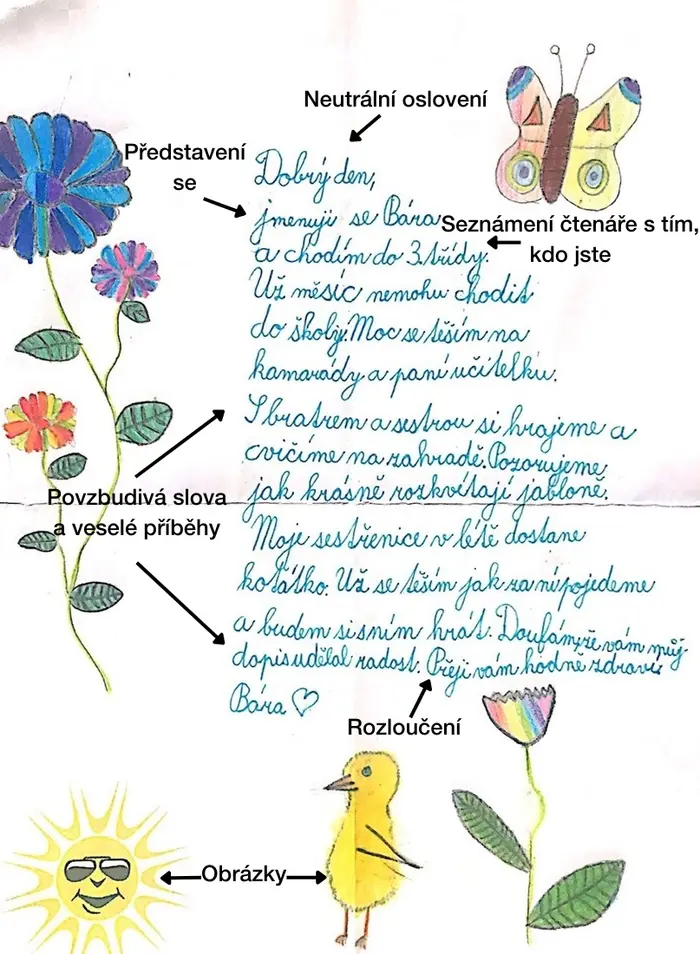 Neutrální oslovení
Představení
se
Dobrý den,
jmenuji se Bára
Seznámení čtenáře s tím,
kdo jste
a chodím do 3. třídy.
Už měsíc nemohu chodit
do školy. Moc se těším na
kamarády a paní učitelku.
S bratrem a sestrou si hrajeme a
cvičíme na zahradě. Pozorujeme
jak krásně rozkvétají jabloně.
Povzbudivá slova
a veselé příběhy
Moje sestřenice v létě dostane
koťátko. Už se těším jak za ní pojedeme
a budem si s ním hrát. Doufám, že vám můj
dopis udělal radost. Přeji vám hodně zdraví
Bára ♡
Rozloučení
Obrázky